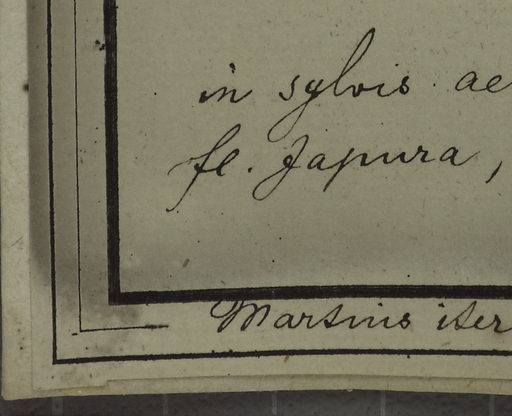 in sylvis ae
fl. Japura,
Martius iter